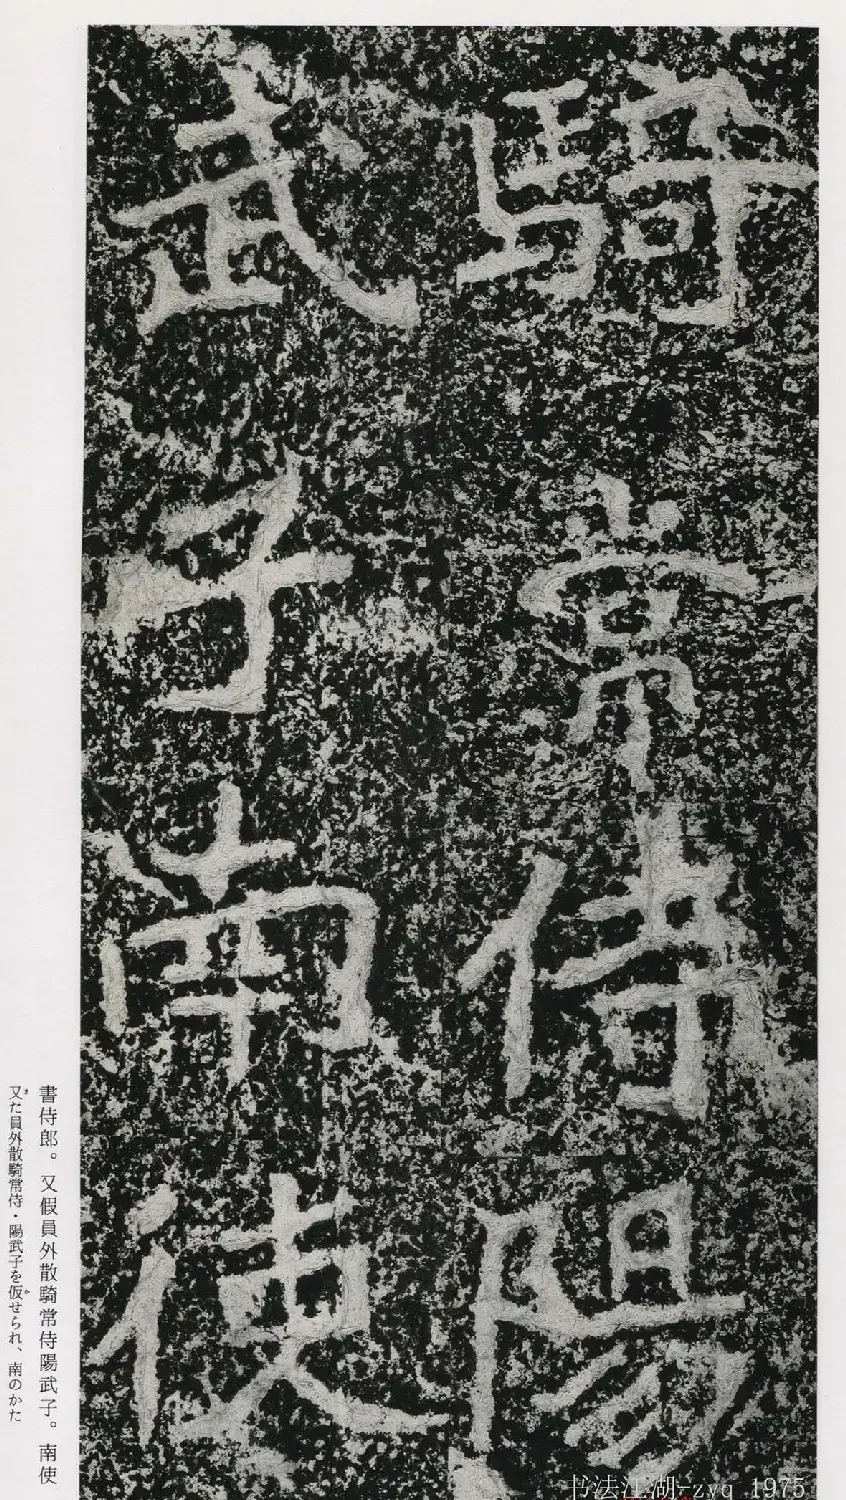 騎常侍陽
武子南使
書侍郎。又假員外散騎常侍陽武子。南使
又た員外散騎常侍・陽武子を仮せられ、南のかた
书法江湖-zyq_1975